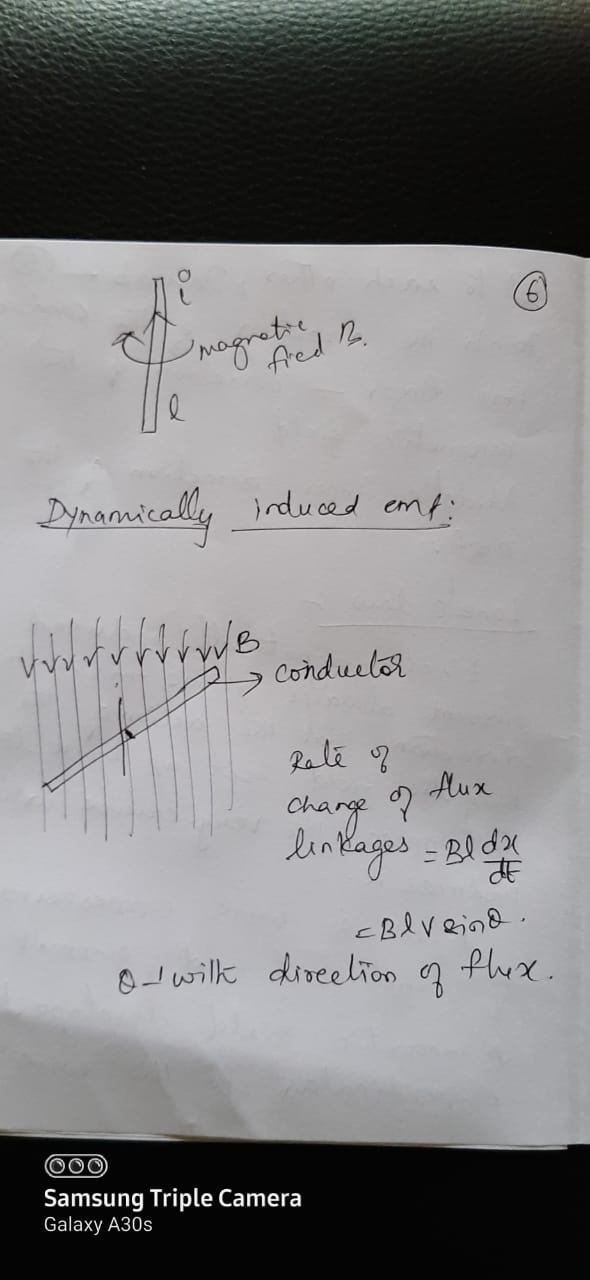 6
i
magnetic
field B.
l
Dynamically induced emf:
B
conductor
Rate of
change of flux
linkages = Bl dx/dt
= Blv sinθ.
θ - with direction of flux.
Samsung Triple Camera
Galaxy A30s